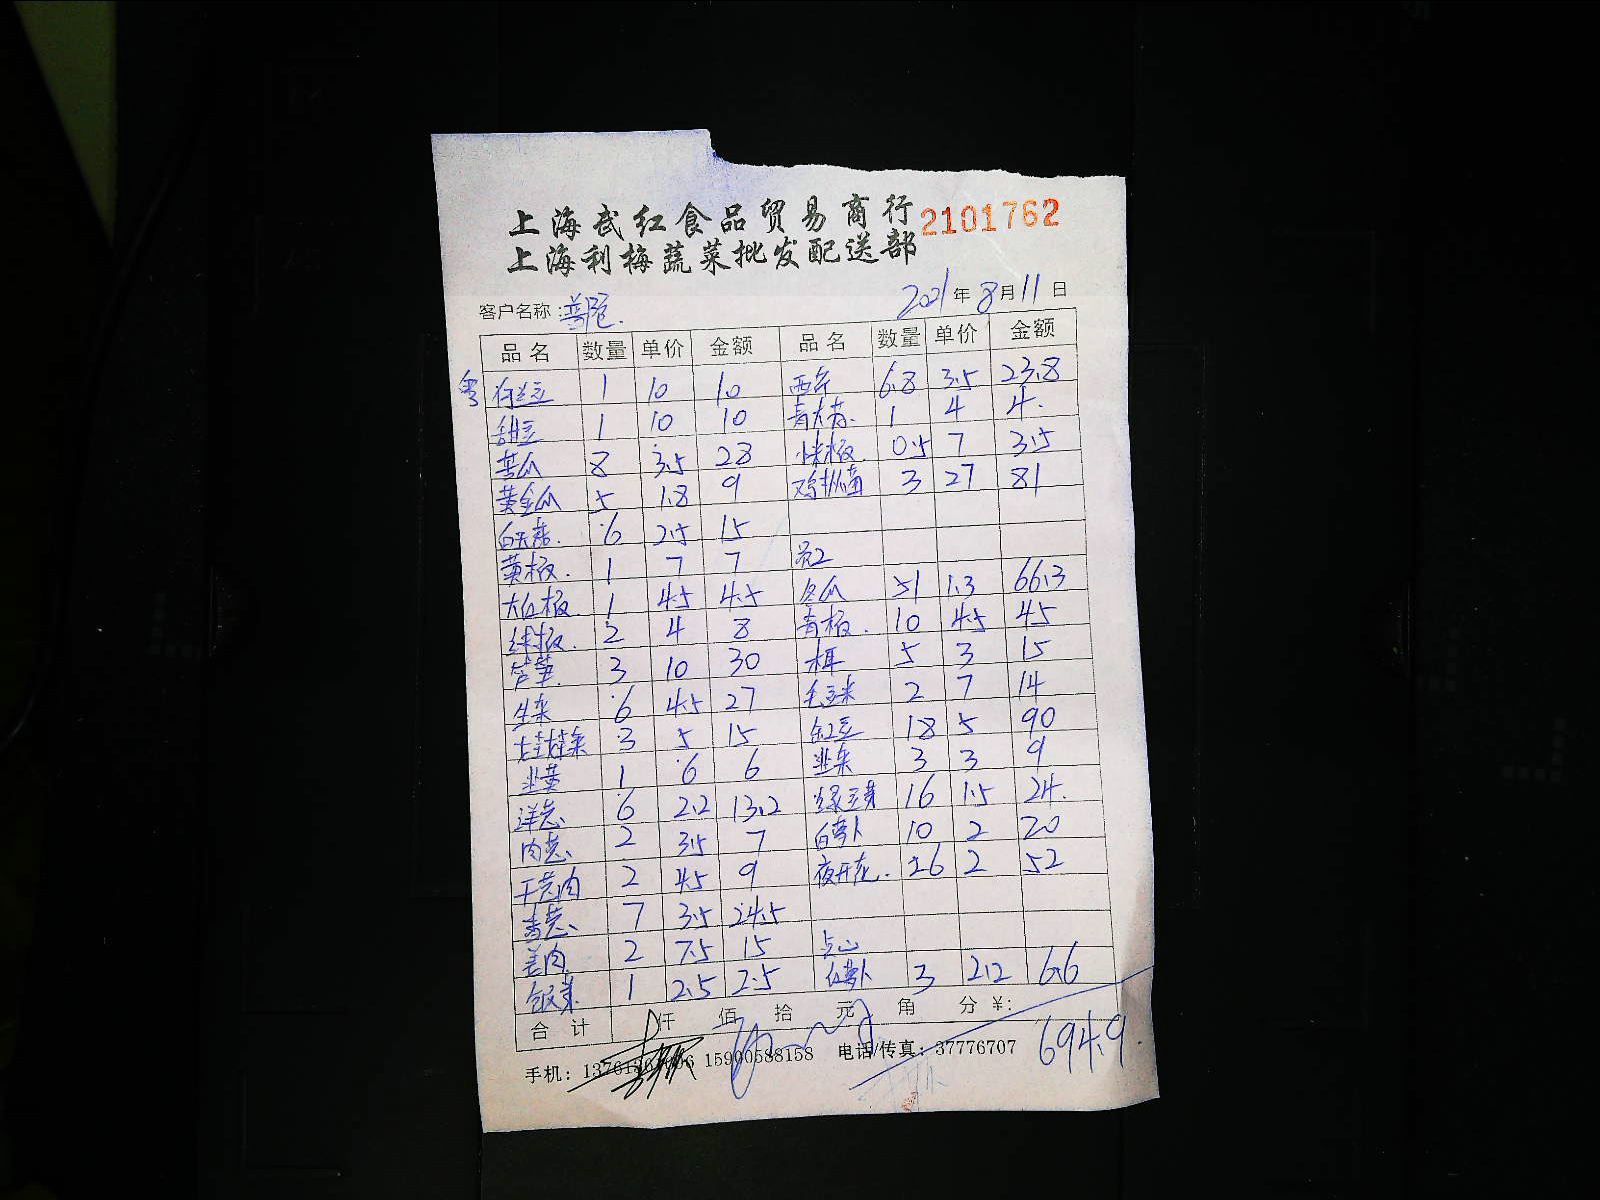 上海武红食品贸易商行 2101762
上海利梅蔬菜批发配送部
客户名称：普陀. 2021年8月11日
品名 数量 单价 金额 品名 数量 单价 金额
粤 荷兰豆 1 10 10 西芹 6.8 3.5 23.8
甜豆 1 10 10 青大蒜. 1 4 4.
苦瓜 8 3.5 28 小米椒. 0.5 7 3.5
黄金瓜 5 1.8 9 鸡枞菌 3 27 81
6 2.5 15
黄椒. 1 7 7 员工
大红椒. 1 4.5 4.5 冬瓜 51 1.3 66.3
2 4 8 青椒. 10 4.5 45
芦笋. 3 10 30 木耳 5 3 15
生菜 6 4.5 27 毛豆米 2 7 14
3 5 15 缸豆 18 5 90
韭黄 1 6 6 韭菜 3 3 9
洋葱 6 2.2 13.2 绿豆芽 16 1.5 24.
肉葱、 2 3.5 7 白萝卜 10 2 20
干葱肉 2 4.5 9 夜开花. 26 2 52
香葱、 7 3.5 24.5
姜肉 2 7.5 15 点心
1 2.5 2.5 红萝卜 3 2.2 6.6
合计 仟 佰 拾 元 角 分 ¥:
694.9.
手机： 15900588158 电话/传真：37776707